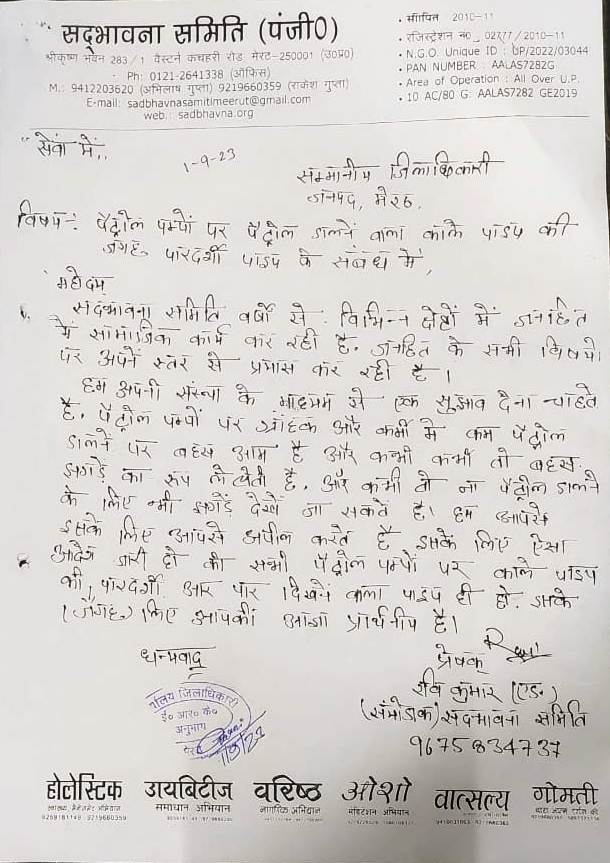 सद्भावना समिति (पंजी0)
श्रीकृष्ण भवन 283/1 वैस्टर्न कचहरी रोड मेरठ-250001 (उ0प्र0)
Ph: 0121-2641338 (ऑफिस)
M.: 9412203620 (अभिलाष गुप्ता) 9219660359 (राकेश गुप्ता)
E-mail: sadbhavnasamitimeerut@gmail.com
web.: sadbhavna.org
• स्थापित 2010-11
• रजिस्ट्रेशन न0 02777/2010-11
• N.G.O. Unique ID : UP/2022/03044
• PAN NUMBER : AALAS7282G
• Area of Operation : All Over U.P.
• 10 AC/80 G: AALAS7282 GE2019
सेवा में,,
1-9-23
सम्मानीय जिलाधिकारी
जनपद, मेरठ.
विषय:- पैट्रोल पम्पों पर पैट्रोल डालने वाला काले पाइप की
जगह पारदर्शी पाइप के संबंध में,
महोदय
सदभावना समिति वर्षो से विभिन्न क्षेत्रों में जनहित
में सामाजिक कार्य कर रही है. जनहित के सभी विषयो
पर अपने स्तर से प्रयास कर रही है।
हम अपनी संस्था के माध्यम से एक सुझाव देना चाहते
है. पैट्रोल पम्पों पर ग्राहक और कर्मी मे कम पैट्रोल
डालने पर बहस आम है और कभी कभी तो बहस
झगड़े का रूप ले लेती है. और कभी तो ना पैट्रोल डालने
के लिए भी झगड़े देखे जा सकते है। हम आपसे
इसके लिए आपसे अपील करते है इसके लिए ऐसा
आदेश जारी हो की सभी पैट्रोल पम्पों पर काले पाइप
की, पारदर्शी आर पार दिखने वाला पाइप ही हो. इसके
(जगह) लिए आपकी आज्ञा प्रार्थनीय है।
धन्यवाद
प्रेषक
रवि कुमार (एड.)
(संयोजक) सदभावना समिति
9675834737
जिलाधिकारी
ई० आर० के०
अनुभाग
होलेस्टिक
डायबिटीज
समाधान अभियान
वरिष्ठ
नागरिक अभियान
ओशो
मेडिटेशन अभियान
वात्सल्य
गोमती
9259181149 9219660359